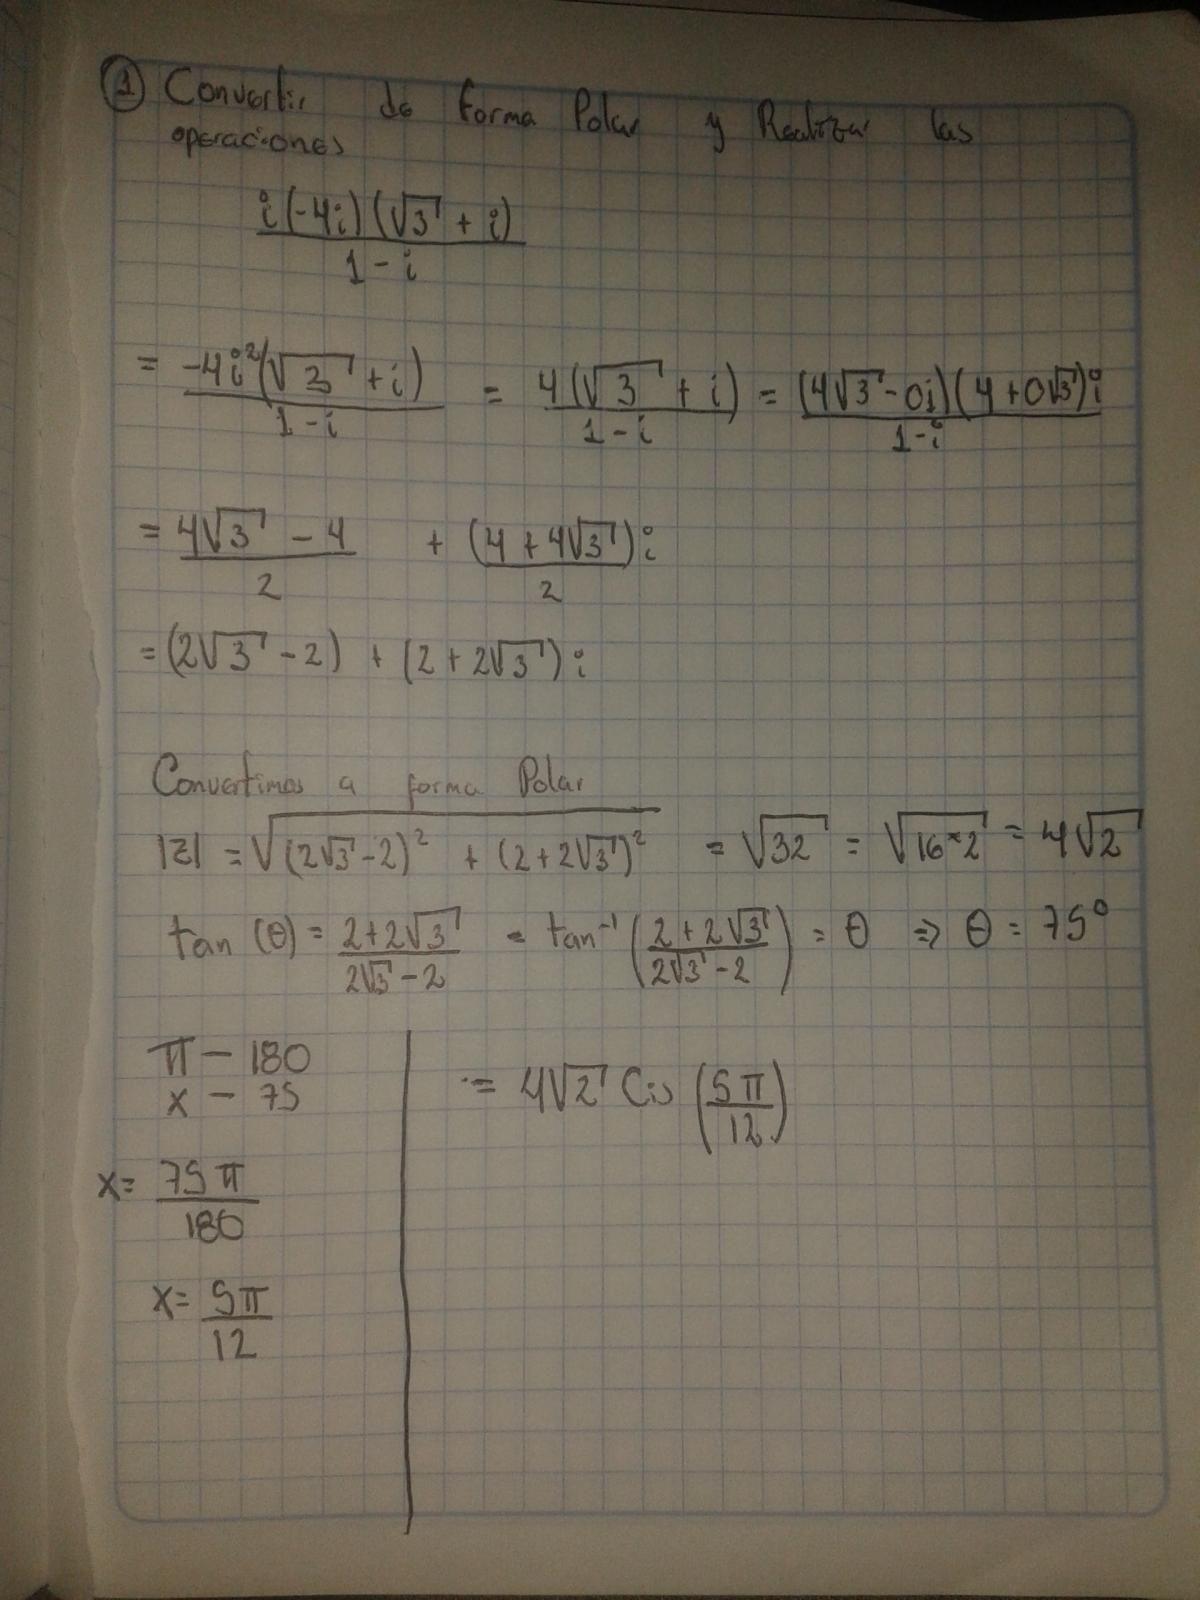 ① Convertir de forma Polar y Realizar las
operaciones
i(-4i)(√3 + i)
1 - i
= -4i²(√3 + i) = 4(√3 + i) = (4√3-0i)(4+0√3)i
1-i 1-i 1-i
= 4√3 - 4 + (4 + 4√3)i
2 2
= (2√3 - 2) + (2 + 2√3)i
Convertimos a forma Polar
|z| = √(2√3-2)² + (2+2√3)² = √32 = √16*2 = 4√2
tan (θ) = 2+2√3 = tan⁻¹ (2+2√3) = θ ⇒ θ = 75°
2√3-2 2√3-2
π - 180
x - 75
∴= 4√2 Cis (5π)
12
x= 75π
180
x= 5π
12